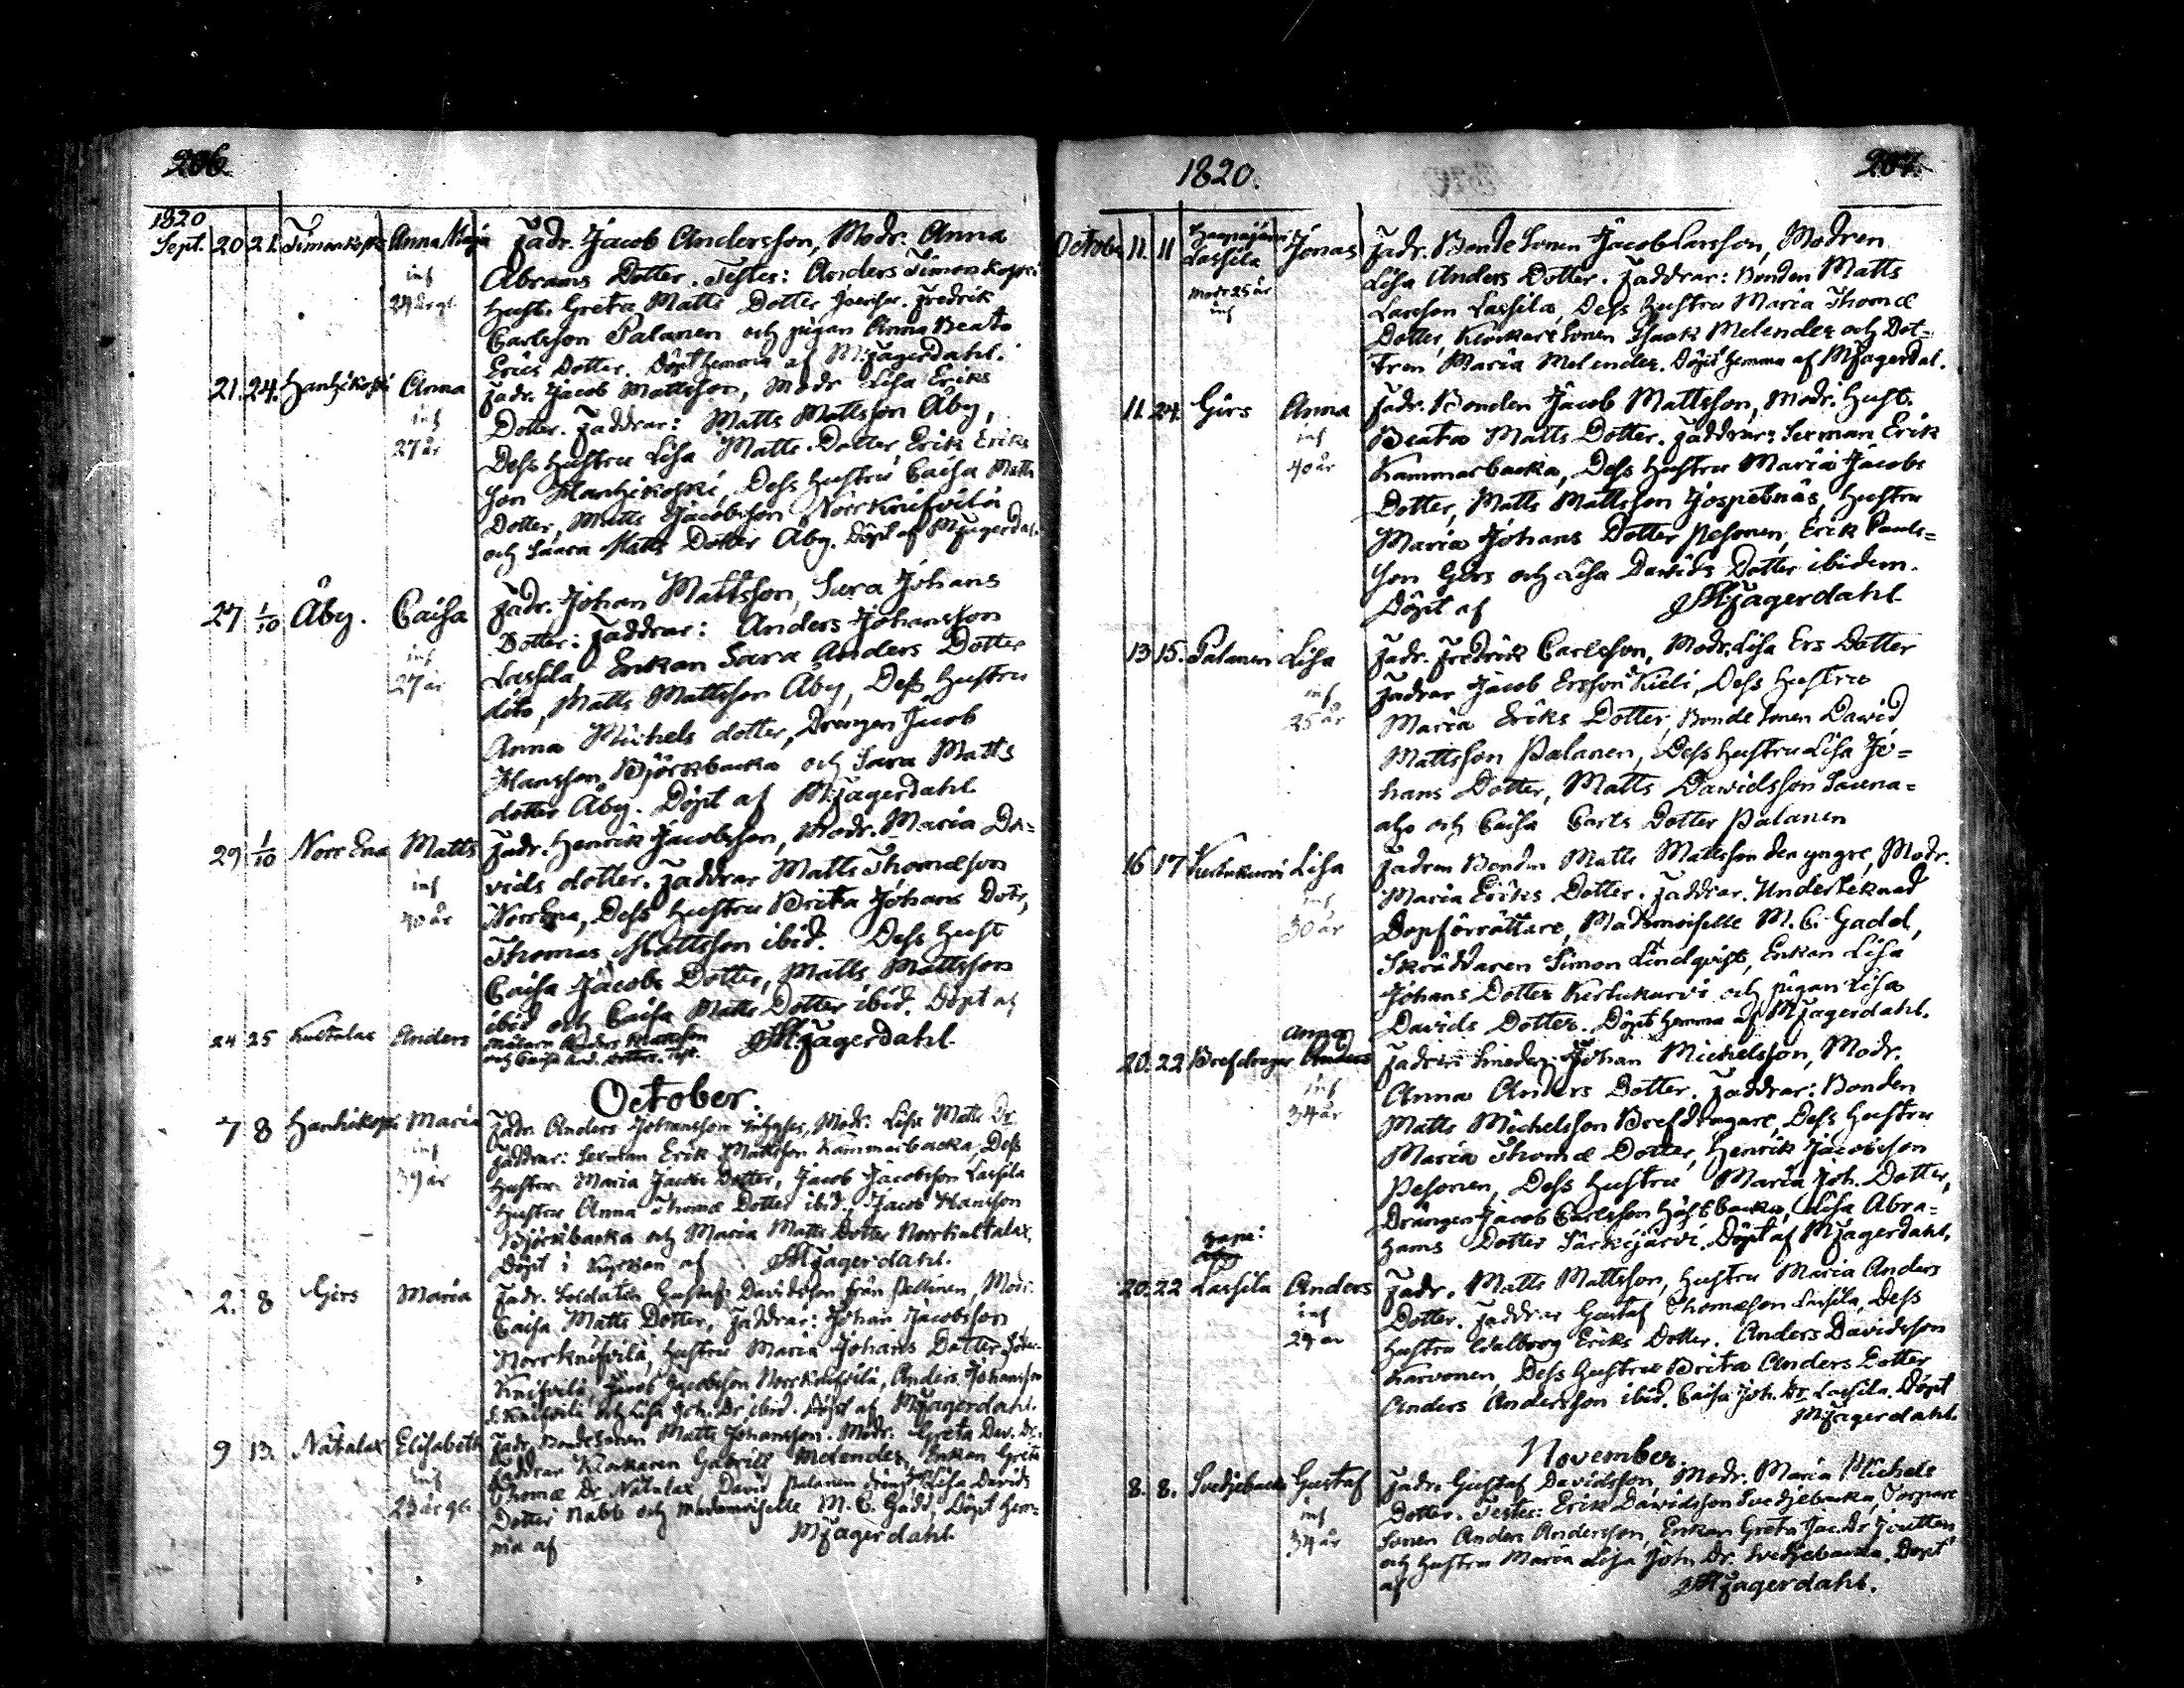 206.
1820
Sept. 20 21. Timonkoski Anna Maja Fadr. Jacob Andersson, Modr. Anna
inf Abrams Dotter. Testes: Anders Timonkoski
Hust. Greta Matts Dotter Fredrik
Carlsson Palanen och pigan Anna Beata
Erics Dotter. Döpt hemma af MFagerdahl.
21. 24. Hanhikoski Anna Fadr. Jacob Mattsson, Modr Lisa Eriks
inf Dotter. Faddrar: Matts Mattsson Åby,
27 år Dess Hustru Lisa Matts Dotter, Erik Eriks
son Hanhikoski, Dess Hustru Caisa Matts
Dotter, Matts Jacobsson Norr Knifvilä
och Saara Matts Dotter Åby. Döpt af MFagerdal.
27 1/10 Åby. Caisa Fadr. Johan Mattsson, Sara Johans
Dotter: Faddrar: Anders Johansson
inf Lassila Enkan Sara Anders Dotter
27 år dito, Matts Mattsson Åby, Dess Hustru
Anna Michels dotter, Drengen Jacob
Hansson Björkbacka och Sara Matts
dotter Åby. Döpt af MFagerdahl
29 1/10 Norr Ena Matts Fadr. Henrik Jacobsson, Modr. Maria Da=
inf vids dotter. Faddrar Matts Thomæson
30 år Norr Ena, Dess Hustru Brita Johans Dotr,
Thomas Mattsson ibid. Dess Hust
Caisa Jacobs Dotter, Matts Mattsson
ibid och Caisa Matts Dotter ibid. Döpt af
MFagerdahl
24 25 Kultalax Anders
och Caisa And. dotter. Test.
October
7 8 Hanhikoski Maria Fadr. Anders Johansson Modr: Lisa Matts Dr
inf Faddrar: Sexman Erik Mattsson Kammarbacka, Dess
39 år Hustru Maria Jacobs Dotter, Jacob Jacobsson Lassila
Hustru Anna Thomæ Dotter ibid. Jacob Hansson
Björkbacka och Maria Matts Dotter Norrkultalax.
Döpt i Kyrkan af MFagerdahl.
2. 8 Girs Maria Fadr. Soldaten Gustaf Davidsson från Pellinen, Modr.
Caisa Matts Dotter, Faddrar: Johan Jacobsson
Norrknifvilä, Hustru Maria Johans Dotter
Knifvilä, Jacob Jacobsson Norrknifvilä, Anders Johansson
S. Knifvilä och Lisa Joh. Dr ibid. Döpt af MFagerdahl.
9 13. Nätalax Elisabeth Fadr. Bondesonen Matts Johansson. Modr: Greta Dav. Dr.
inf Faddrar Klockaren Gabriel Melender, Enkan Greta
23 år gl. Thomæ Dr Nätalax David Palanen Lisa Davids
Dotter Nabb och Mademoiselle M. C. Gadd, Döpt hem=
ma af MFagerdahl
1820.
207.
Octobr 11. 11 Haapajärvi Lassila Jonas Fadr. Bonde Sonen Jacob Larsson, Modren
Modr 25 år Lisa Anders Dotter. Faddrar: Bonden Matts
inf Larsson Lassila, Dess Hustru Maria Thomæ
Dotter, Klockare Sonen Isaak Melender och Dot=
tren Maria Melender. Döpt hemma af MFagerdal.
11. 24 Girs Anna Fadr. Bonden Jacob Mattsson, Modr. Hust.
inf Beata Matts Dotter. Faddrar: Sexman Erik
40 år Kammarbacka, Dess Hustru Maria Jacobs
Dotter, Matts Mattsson Jospetnäs, Hustru
Maria Johans Dotter Pesonen, Erik Pauls=
son Girs och Lisa Davids Dotter ibidem.
Döpt af MFagerdahl
13 15. Palanen Lisa Fadr. Fredrik Carlsson, Modr. Lisa Ers Dotter
inf Fadrar Jacob Ersson Kieli, Dess Hustru
25 år Maria Eriks Dotter, Bonde Sonen David
Mattsson Palanen, Dess Hustru Lisa Jo=
hans Dotter, Matts Davidsson Sauna=
aho och Caisa Carls Dotter Palanen
16 17 Kertukurvi Lisa Fadren Bonden Matts Mattsson den yngre, Modr.
inf Maria Eriks Dotter. Faddrar. Underteknad
30 år Dopförrättare, Mademoiselle M. C. Gadd,
Skräddaren Simon Lindqvist, Enkan Lisa
Johans Dotter Kertukurvi och pigan Lisa
Davids Dotter. Döpt hemma af MFagerdahl.
Anna
20. 22 Brefdragar Anders Fadren Smeden Johan Michelsson, Modr.
inf Anna Anders Dotter. Faddrar: Bonden
34 år Matts Michelsson Brefdragare, Dess Hustru
Maria Thomæ Dotter, Henrik Jacobsson
Pesonen, Dess Hustru Maria Joh. Dotter,
Drängen Jacob Carlsson Höltbacka, Lisa Abra=
hams Dotter Särkijärvi. Döpt af MFagerdahl.
20. 22 Lassila Anders Fadr. Matts Mattsson, Hustru Maria Anders
inf Dotter. Faddrar Gustaf Thomæson Lassila, Dess
29 år Hustru Walborg Eriks Dotter. Anders Davidsson
Karvonen, Dess Hustru Brita Anders Dotter
Anders Andersson ibid. Caisa Joh. Dr Lassila. Döpt
MFagerdahl.
November.
8. 8. Svedjebacka Gustaf Fadr. Gustaf Davidsson, Modr. Maria Michels
inf Dotter. Testes: Erik Davidsson Svedjebacka, Torpare
34 år Sonen Anders Andersson, Enkan Greta Jac. Dr
och Hustru Maria Lisa Joh. Dr. Svedjebacka. Döpt
af MFagerdahl.